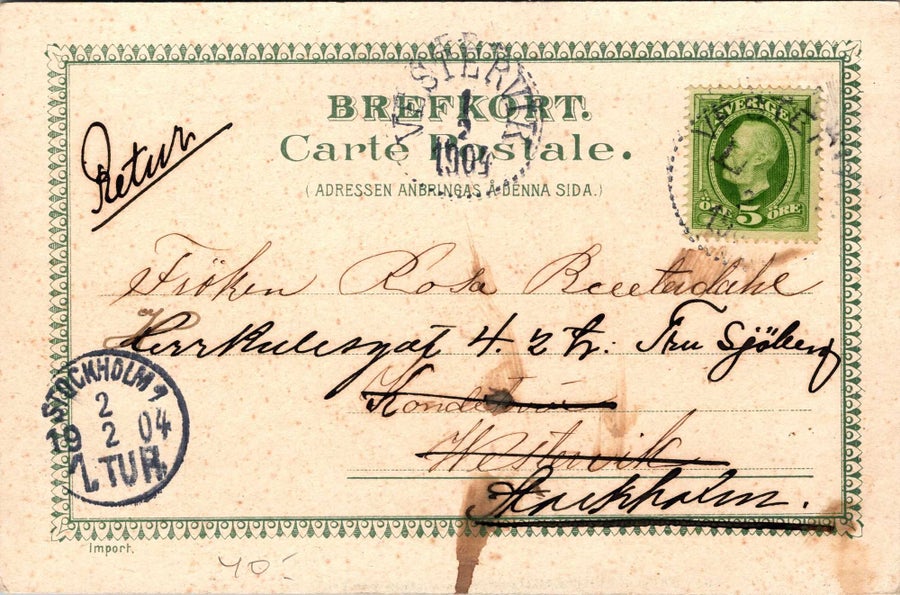 BREFKORT.
Carte Postale.
(ADRESSEN ANBRINGAS Å DENNA SIDA.)
VESTERVIK
1
2
1904
SVERIGE
ÖRE 5 ÖRE
VESTER
1
Retur
Fröken Rosa
Herrkulesgat 4. 2 tr. Fru Sjöberg
Westervik
Stockholm.
STOCKHOLM 1
2
19 2 04
1. TUR.
Import.
40-